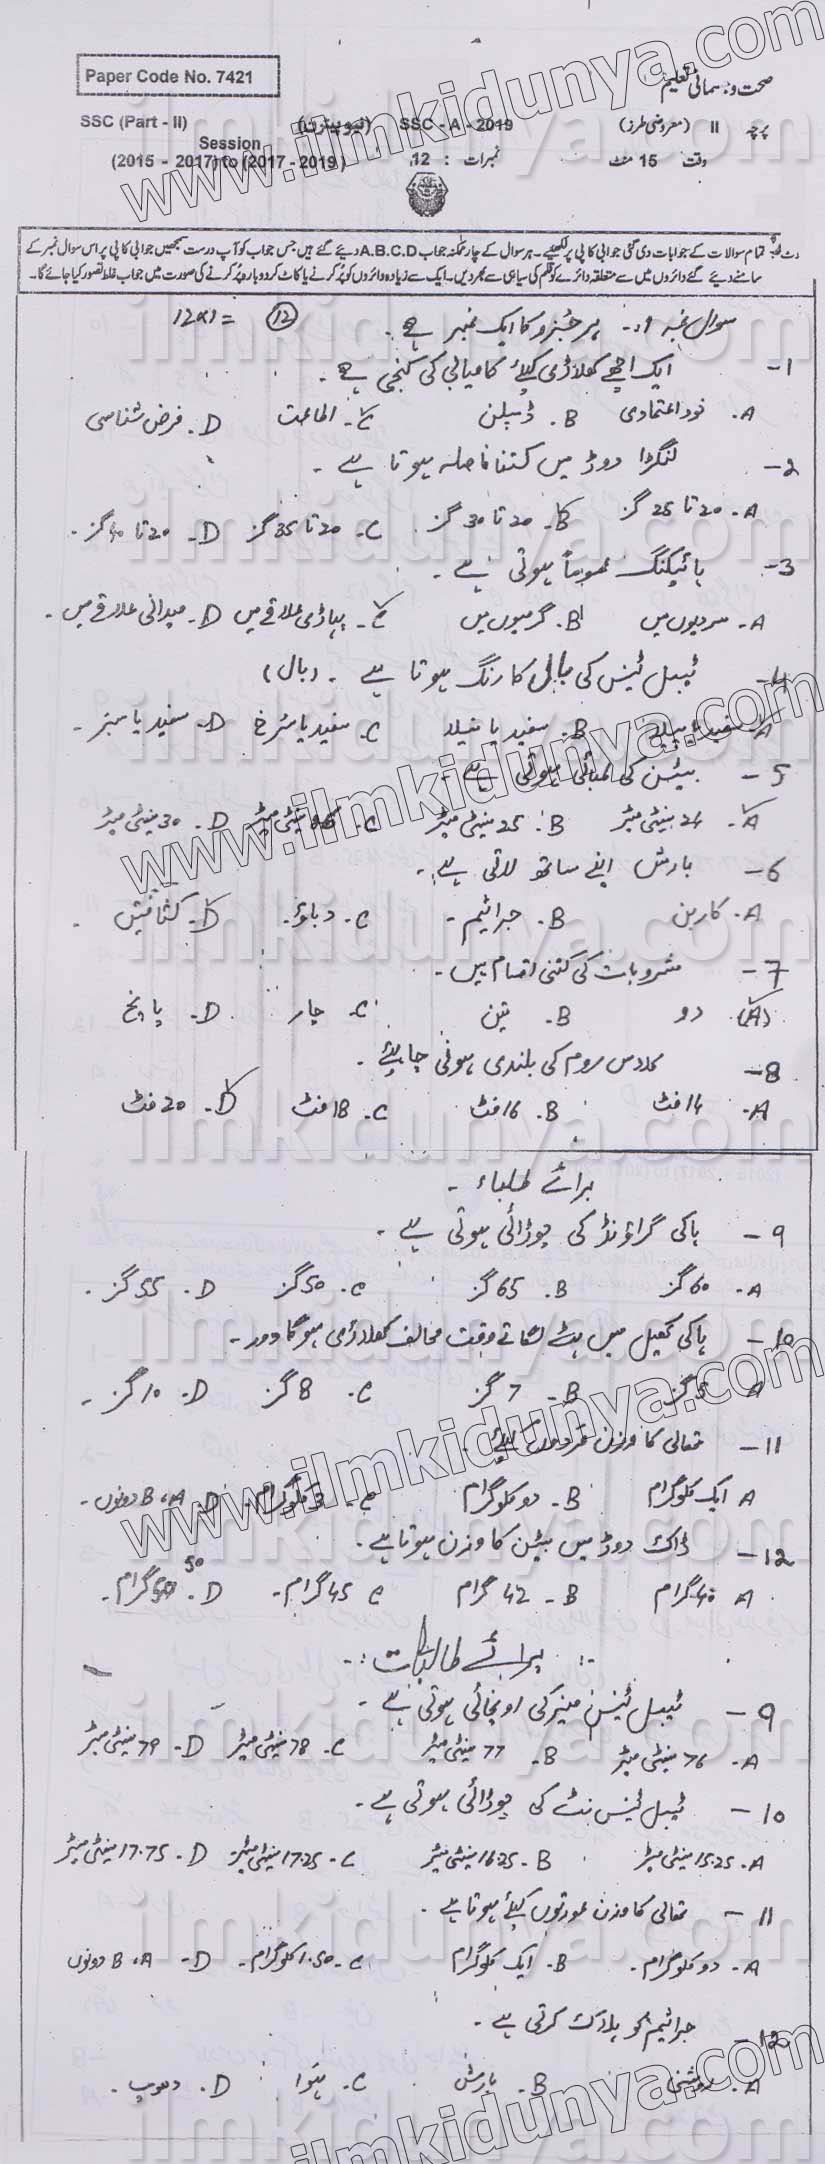 Paper Code No. 7421
صحت و جسمانی تعلیم
SSC (Part - II) (نیو پیٹرن) SSC - A - 2019 پرچہ II (معروضی طرز)
Session
(2015 - 2017) to (2017 - 2019) نمبرات : 12 وقت 15 منٹ
نوٹ: تمام سوالات کے جوابات دی گئی جوابی کاپی پر لکھیے۔ ہر سوال کے چار ممکنہ جواب A.B.C.D دیئے گئے ہیں جس جواب کو آپ درست سمجھیں جوابی کاپی پر اس سوال نمبر کے
سامنے دیئے گئے دائروں میں سے متعلقہ دائرے کو قلم کی سیاہی سے بھر دیں۔ ایک سے زیادہ دائروں کو پُر کرنے یا کاٹ کر دوبارہ پُر کرنے کی صورت میں جواب غلط تصور کیا جائے گا۔
سوال نمبر 1:- ہر جزو کا ایک نمبر ہے۔ (12) = 12x1
1- ایک اچھے کھلاڑی کیلئے کامیابی کی کنجی ہے۔
A. خود اعتمادی B. ڈسپلن C. اطاعت D. فرض شناسی
2- لنگڑا دوڑ میں کتنا فاصلہ ہوتا ہے۔
A. 20 تا 25 گز B. 20 تا 30 گز C. 20 تا 35 گز D. 20 تا 40 گز۔
3- ہائیکنگ عموماً ہوتی ہے۔
A. سردیوں میں B. گرمیوں میں C. پہاڑی علاقے میں D. میدانی علاقے میں۔
4- ٹیبل ٹینس کی بال کا رنگ ہوتا ہے۔ (بال)
A. سفید یا پیلا B. سفید یا نیلا C. سفید یا سرخ D. سفید یا سبز۔
5- بیٹن کی لمبائی ہوتی ہے۔
A. 24 سینٹی میٹر B. 25 سینٹی میٹر C. سینٹی میٹر D. 30 سینٹی میٹر
6- بارش اپنے ساتھ لاتی ہے۔
A. کاربن B. جراثیم۔ C. دباؤ۔ D. کثافتیں۔
7- مشروبات کی کتنی اقسام ہیں۔
A. دو B. تین C. چار D. پانچ
8- کلاس روم کی بلندی ہونی چاہیئے۔
A. 14 فٹ B. 16 فٹ C. 18 فٹ D. 20 فٹ
برائے طلباء۔
9- ہاکی گراؤنڈ کی چوڑائی ہوتی ہے۔
A. 60 گز B. 65 گز C. 50 گز D. 55 گز۔
10- ہاکی کھیل میں ہٹ لگاتے وقت مخالف کھلاڑی ہوگا دور۔
A. 5 گز B. 7 گز C. 8 گز D. 10 گز۔
11- تھالی کا وزن مردوں کیلئے۔
A ایک کلوگرام B- دو کلوگرام C- 3 کلوگرام۔ D. A، B دونوں۔
12- ڈاک دوڑ میں بیٹن کا وزن ہوتا ہے۔
A 40 گرام B- 42 گرام C 45 گرام۔ D. 50 گرام۔
برائے طالبات:-
9- ٹیبل ٹینس میز کی اونچائی ہوتی ہے۔
A. 76 سینٹی میٹر B. 77 سینٹی میٹر C. 78 سینٹی میٹر D. 79 سینٹی میٹر
10- ٹیبل ٹینس نٹ کی چوڑائی ہوتی ہے۔
A. 15.25 سینٹی میٹر B. 16.25 سینٹی میٹر C. 17.25 سینٹی میٹر D. 17.75 سینٹی میٹر
11- تھالی کا وزن عورتوں کیلئے ہوتا ہے۔
A. دو کلوگرام۔ B. ایک کلوگرام C. 1.50 کلوگرام۔ D- A، B دونوں
12- جراثیم کو ہلاک کرتی ہے۔
A. روشنی B. بارش C. ہوا D. دھوپ۔
www.ilmkidunya.com
ilmkidunya.com